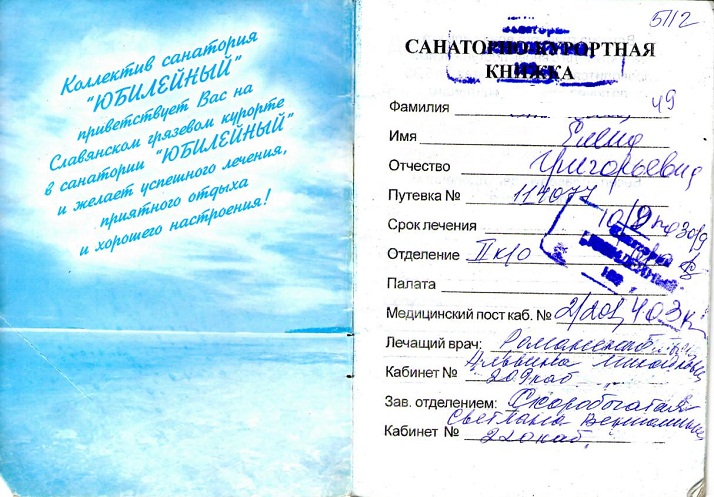 Коллектив санатория
"ЮБИЛЕЙНЫЙ"
приветствует Вас на
Славянском грязевом курорте
в санатории "ЮБИЛЕЙНЫЙ"
и желает успешного лечения,
приятного отдыха
и хорошего настроения!
5112
САНАТОРНО-КУРОРТНАЯ
КНИЖКА
Фамилия 49
Имя Елена
Отчество Григорьевна
Путевка № 114077
Срок лечения 10/9 по 30/9
Отделение II к/о
Палата
Медицинский пост каб. № 2/201, 403
Лечащий врач:
Кабинет № 209 каб
Зав. отделением: Скоробогатая
Светлана
Кабинет № 220 каб.